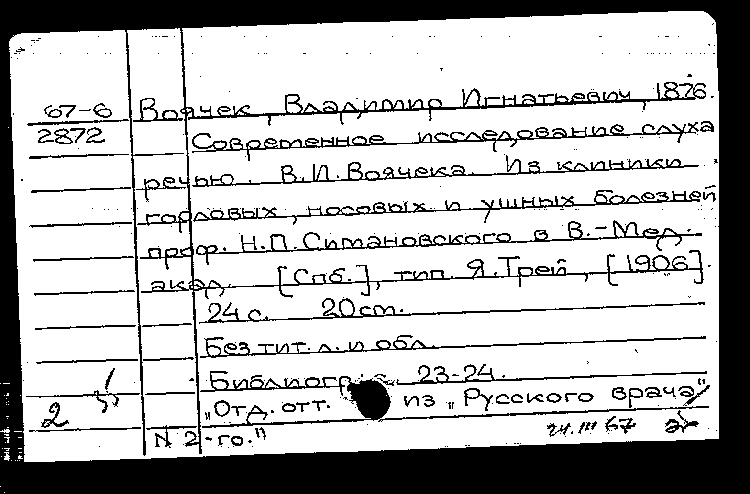 67-6 Воячек, Владимир Игнатьевич, 1876.
2872 Современное исследование слуха
речью. В.И. Воячека. Из клиники
горловых, носовых и ушных болезней
проф. Н.П. Симановского в В.-Мед.
акад. [Спб.], тип. Я. Трей, [1906].
24 с. 20 cm.
Без тит. л. и обл.
Библиогр. с. 23-24.
2 „Отд. отт. из „Русского врача"
N 2-го."
24.III 67